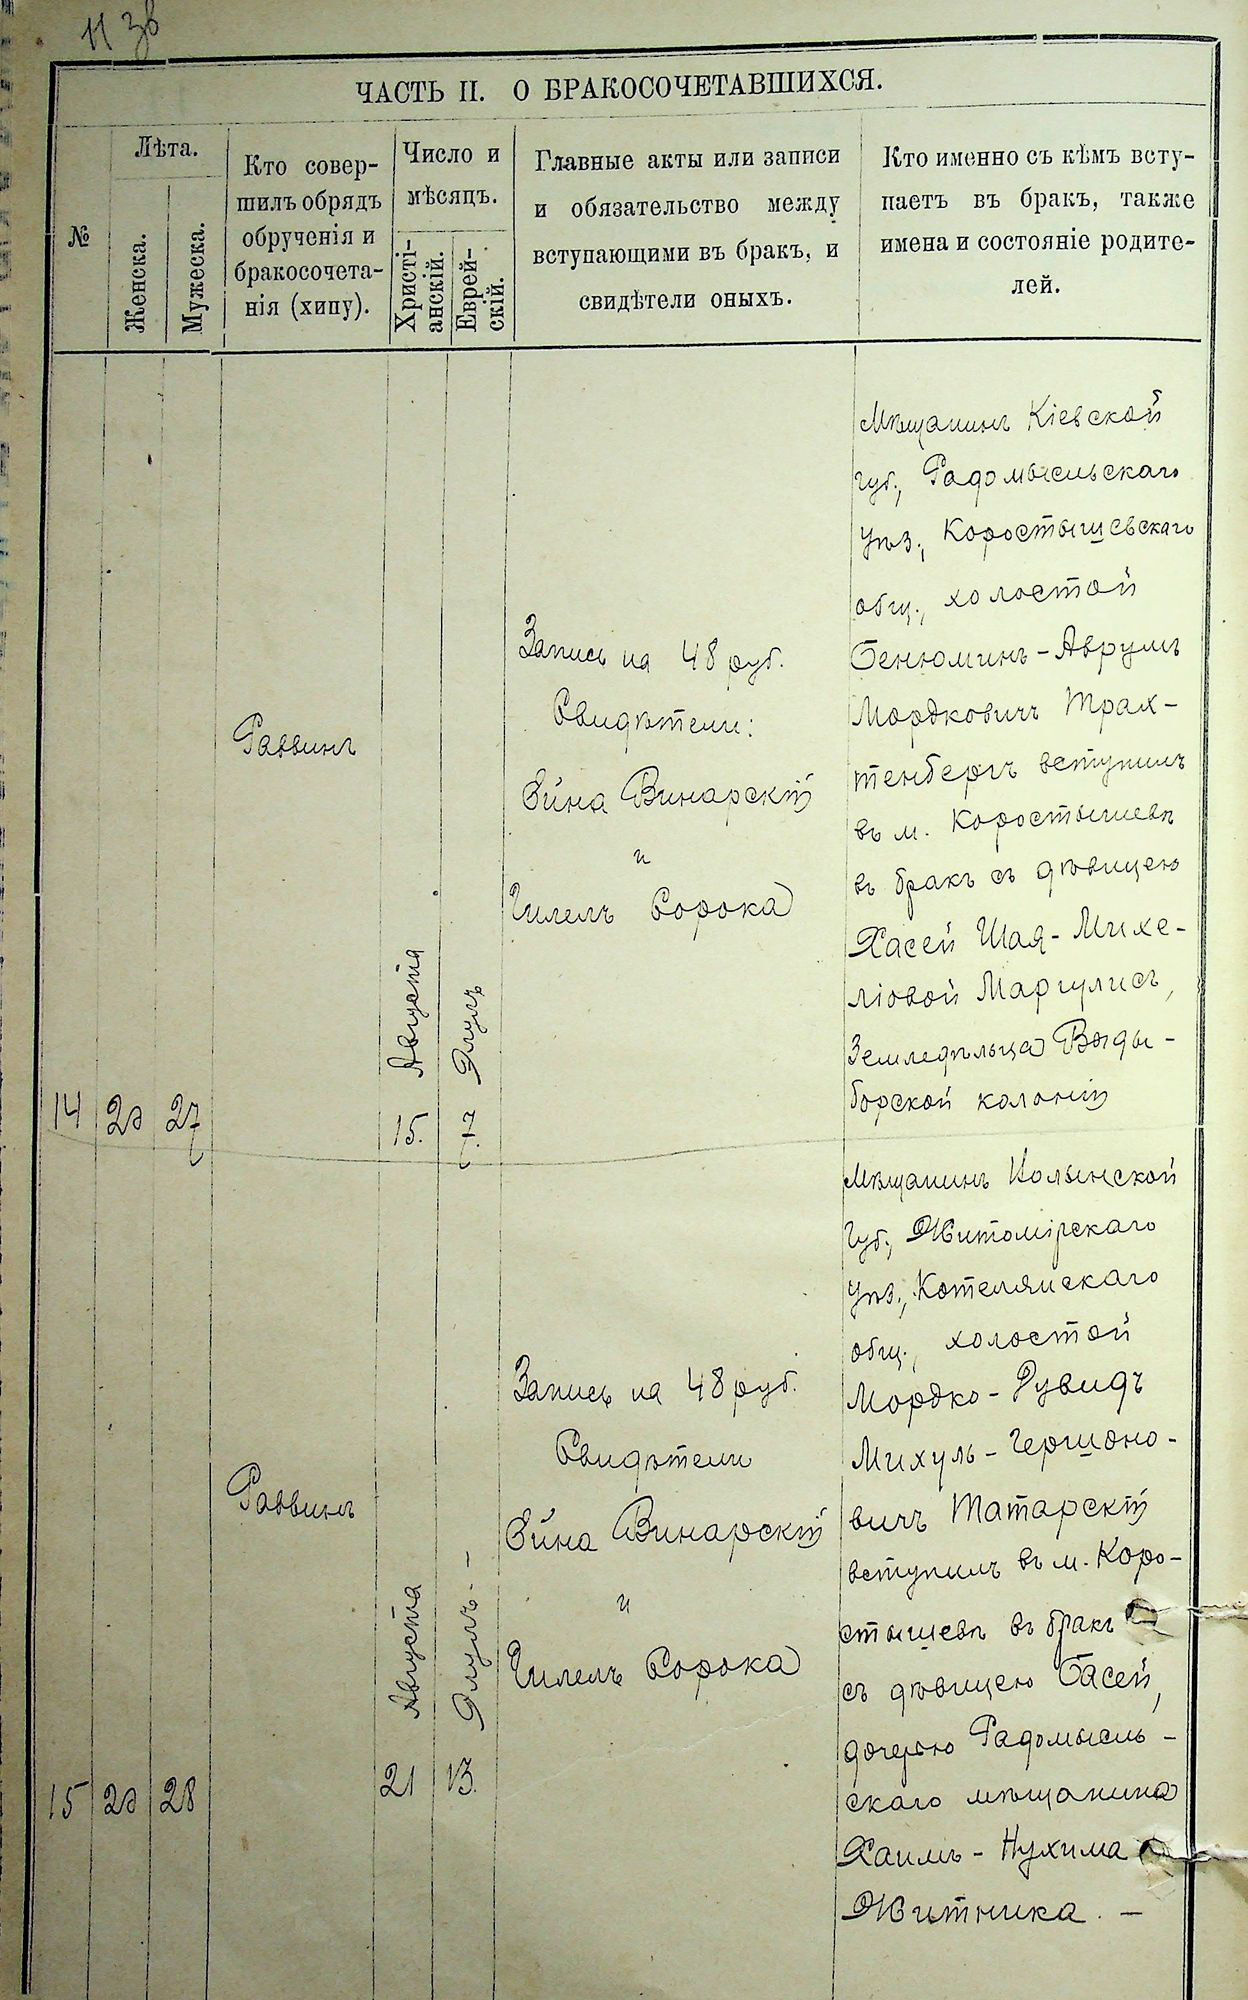 11 зв
ЧАСТЬ II. О БРАКОСОЧЕТАВШИХСЯ.
№
Лѣта.
Женска.
Мужеска.
Кто совер-
шилъ обрядъ
обрученія и
бракосочета-
нія (хипу).
Число и
мѣсяцъ.
Христі-
анскій.
Еврей-
скій.
Главные акты или записи
и обязательство между
вступающими въ бракъ, и
свидѣтели оныхъ.
Кто именно съ кѣмъ всту-
паетъ въ бракъ, также
имена и состояніе родите-
лей.
14
20
27
Раввинъ
15.
Августа
7.
Элулъ
Запись на 48 руб.
Свидѣтели:
Ейна Винарскій
и
Гилелъ Сорока
Мѣщанинъ Кіевской
губ., Радомысльскаго
уѣз., Коростышевскаго
общ., холостой
Бенюминъ-Аврумъ
Мордковичъ Трах-
тенбергъ вступилъ
въ м. Коростышевѣ
въ бракъ съ дѣвицею
Хасей Шая-Михе-
ліовой Маргулисъ,
Земледѣльца Выды-
борской колоніи
15
20
28
Раввинъ
21
Августа
13.
Элулъ. -
Запись на 48 руб.
Свидѣтели
Ейна Винарскій
и
Гилелъ Сорока
Мѣщанинъ Волынской
губ., Житомірскаго
уѣз., Котелянскаго
общ., холостой
Мордко-Рувидъ
Михуль-Гершоно-
вичъ Татарскій
вступилъ въ м. Коро-
стышевѣ въ бракъ
съ дѣвицею Басей,
дочерью Радомысль-
скаго мѣщанина
Хаимъ-Нухима
Житника. -